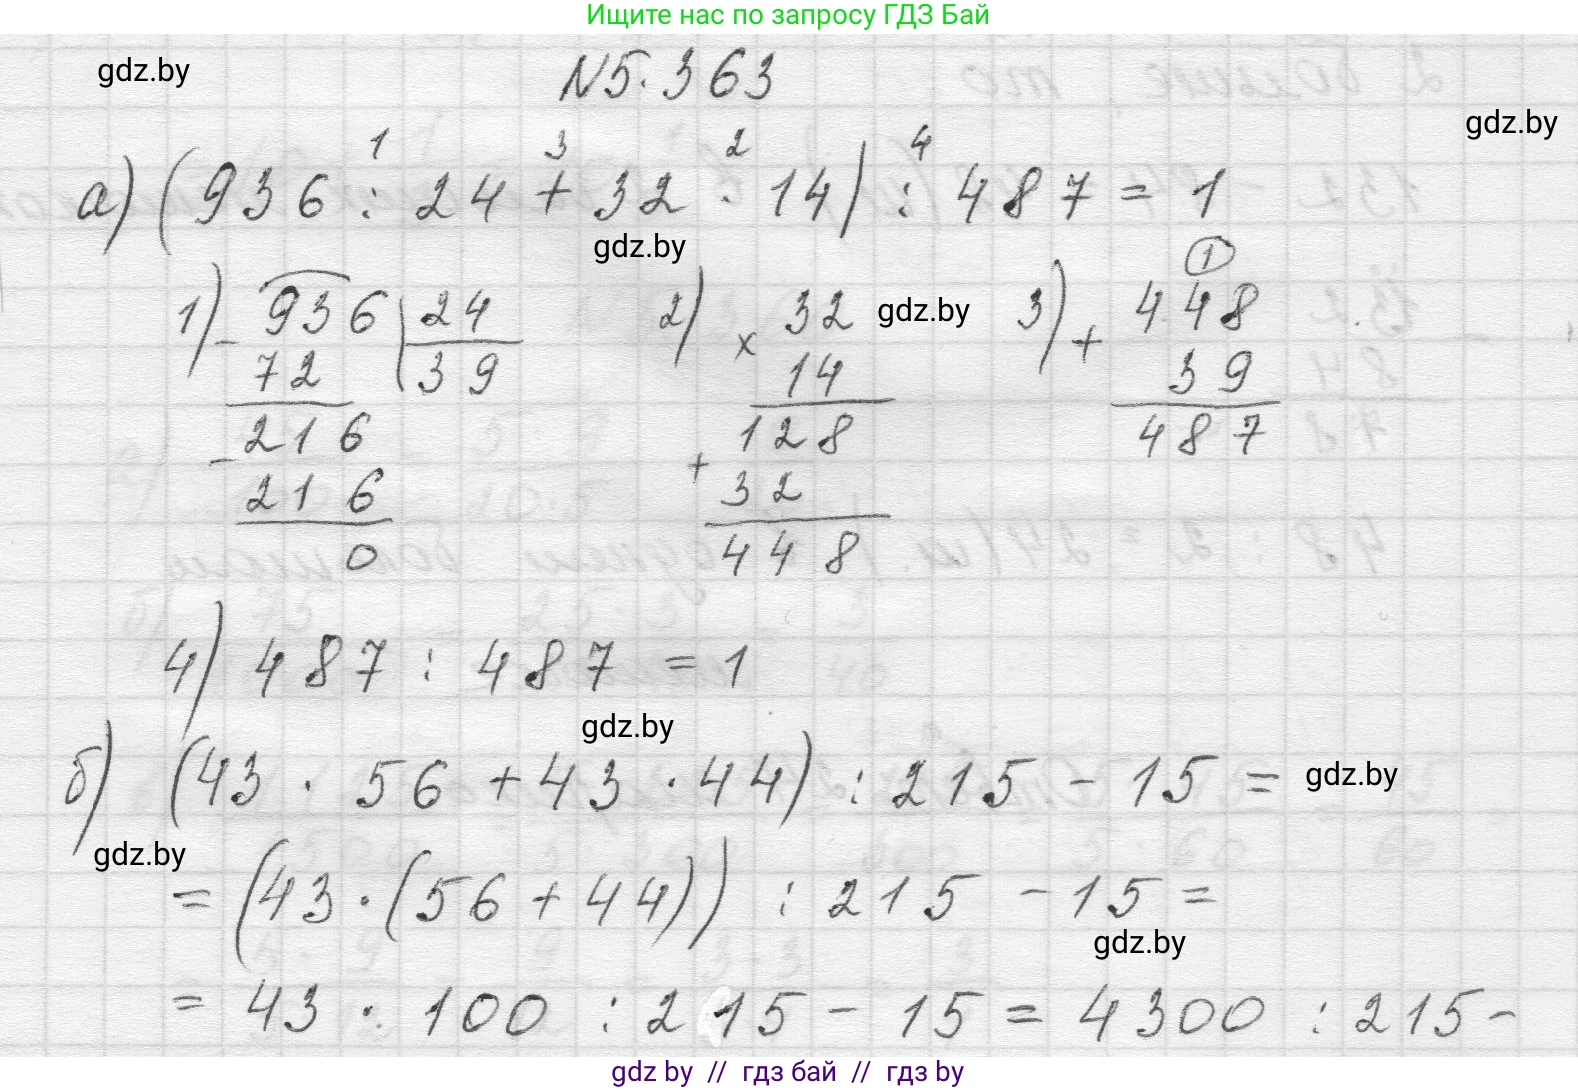 Ищите нас по запросу ГДЗ Бай
gdz.by
N5.363
gdz.by
1 3 2 4
а) (936 : 24 + 32 · 14) : 487 = 1
gdz.by
1) 936 | 24
- 72 39
216
- 216
0
2) 32
× 14
128
+ 32
448
gdz.by
1
3) 448
+ 39
487
4) 487 : 487 = 1
gdz.by
б) (43 · 56 + 43 · 44) : 215 - 15 =
gdz.by
gdz.by
= (43 · (56 + 44)) : 215 - 15 =
gdz.by
= 43 · 100 : 215 - 15 = 4300 : 215 -
gdz by // гдз бай // гдз by